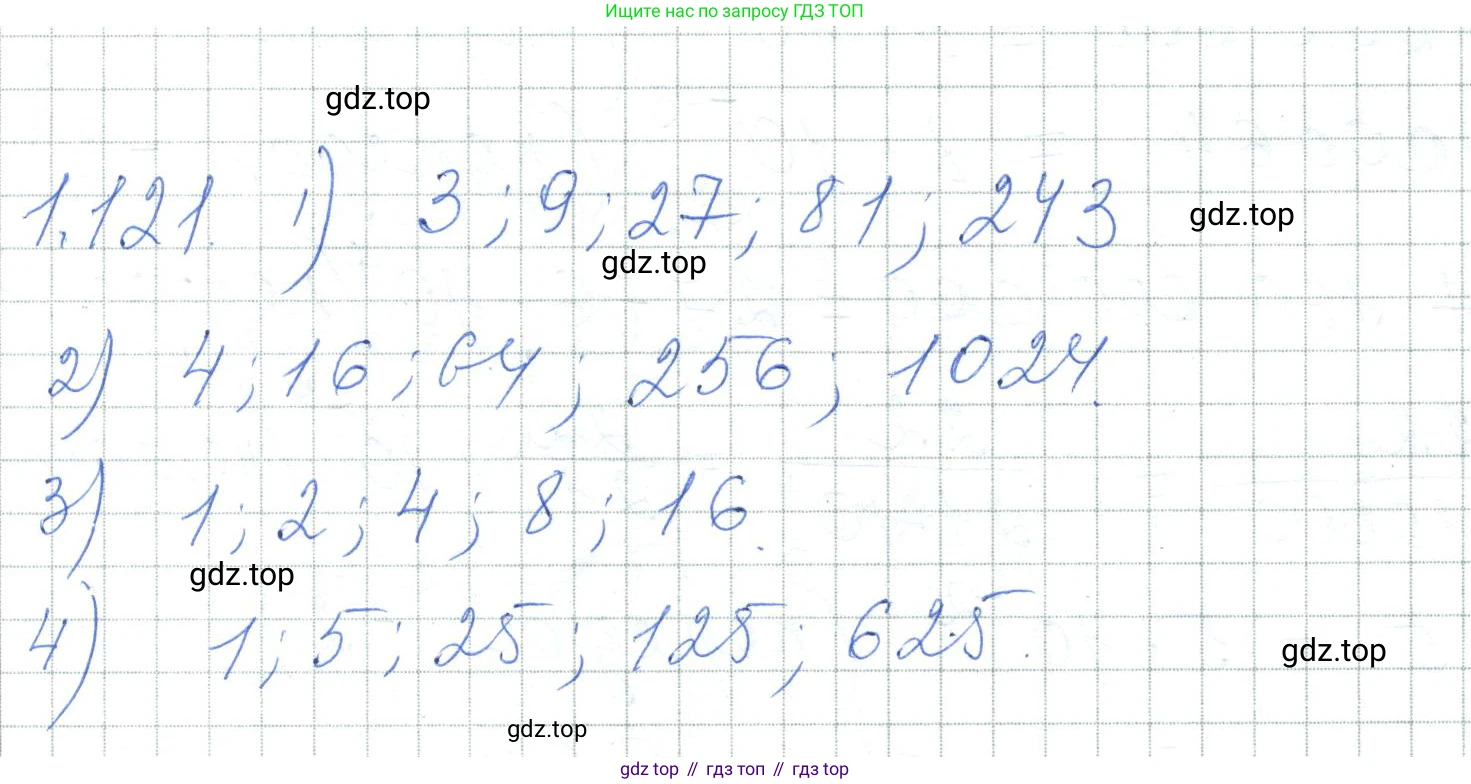 Ищите нас по запросу ГДЗ ТОП
gdz.top
1.121. 1) 3; 9; 27; 81; 243
gdz.top
gdz.top
2) 4; 16; 64; 256; 1024.
3) 1; 2; 4; 8; 16.
gdz.top
4) 1; 5; 25; 125; 625.
gdz.top
gdz.top
gdz top // гдз топ // гдз top